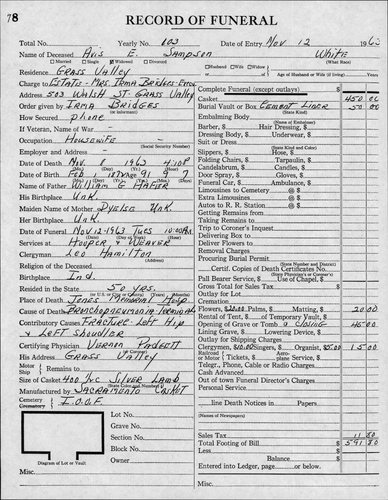 78
RECORD OF FUNERAL
Total No. Yearly No. 103 Date of Entry Nov 12 1963
Name of Deceased Avis E. Sampson White
(What Race)
Married Single Widowed Divorced Husband Wife Widow
Residence Grass Valley of Age of Husband or Wife (if living) Years
Charge to Estate - Mrs Irma Bridges
Address 503 Walsh St. Grass Valley
Order given by Irma Bridges
(or informant)
How Secured Phone
If Veteran, Name of War -
Occupation Housewife
(Social Security Number)
Employer and Address
Date of Death Nov 8 1963 4:10 P
Date of Birth Feb 1 1872 Age 91 9 7
Name of Father William G
His Birthplace Unk.
Maiden Name of Mother Unk.
Her Birthplace Unk.
Date of Funeral Nov 12-1963 Tues 10:00 AM
Services at Hooper & Weaver
Clergyman Leo Hamilton
Religion of the Deceased
Birthplace Ind.
Resided in the State 50 yrs.
Place of Death Jones Memorial Hosp
Cause of Death Bronchopneumonia Terminal
Contributory Causes Fracture Left Hip
& Left Shoulder
Certifying Physician Vernon Padgett
His Address Grass Valley
Motor Ship Remains to
Size of Casket 6/00 Silver Lamb
Manufactured by Sacramento Casket
Cemetery Crematory I.O.O.F
Lot No.
Grave No.
Section No.
Block No.
Owner
Diagram of Lot or Vault
Misc.
Complete Funeral (except outlays) $
Casket 450 00
Burial Vault or Box Cement Liner 50 00
(State Kind)
Embalming Body
(Name of Embalmer)
Barber, $ Hair Dressing, $
Dressing Body, $ Underwear, $
Suit or Dress
(State Kind and Color)
Slippers, $ Hose, $
Folding Chairs, $ Tarpaulin, $
Candelabrum, $ Candles, $
Door Spray, $ Gloves, $
Funeral Car, $ Ambulance, $
Limousines to Cemetery @ $
Extra Limousines @ $
Autos to R. R. Station @ $
Getting Remains
Taking Remains
Trip to Coroner's Inquest
Delivering Box to
Deliver Flowers to
Removal Charges
Procuring Burial Permit
Certif. Copies of Death Certificate No.
Pall Bearer Service, $ Use of Chapel, $
Gross Total for Sales Tax $
Outlay for Lot
Cremation
Flowers, $20.00 Palms, $ Matting, $ 20 00
Rental of Tent, $ of Temporary Vault, $
Opening of Grave or Tomb & Closing 45 00
Lining Grave, $ Lowering Device, $
Outlay for Shipping Charges
Clergymen, $10.00 Singers, $ Organist, $5.00 15 00
Railroad or Motor Tickets, $ Aeroplane Service, $
Telegr., Phone, Cable or Radio Charges
Cash Advanced
Out of town Funeral Director's Charges
Personal Service
line Death Notices in Papers
(Names of Newspapers)
Sales Tax 11 80
Total Footing of Bill $ 591 80
Less
Balance $
Entered into Ledger, page or below.
Misc.